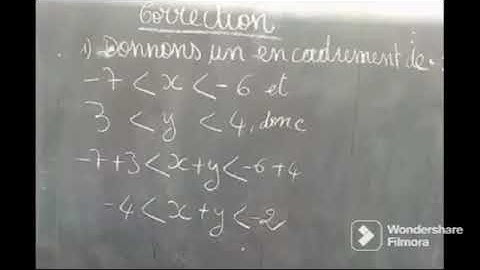 Correction
1) Donnons un encadrement de :
-7 < x < -6 et
3 < y < 4, donc
-7+3 < x+y < -6+4
-4 < x+y < -2
Wondershare
Filmora